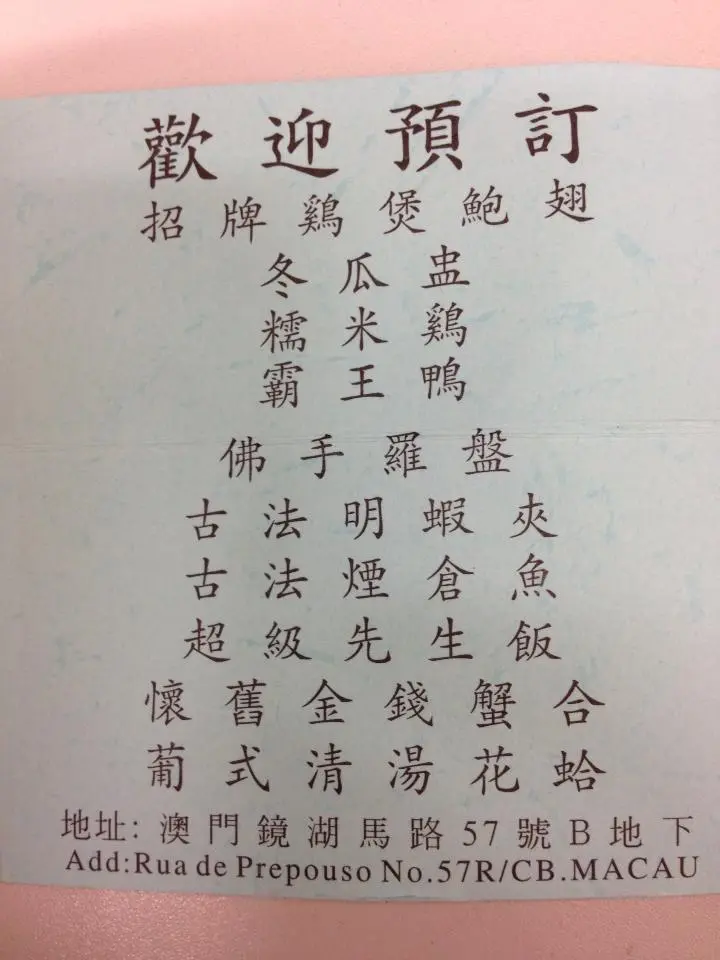 歡迎預訂
招牌鷄煲鮑翅
冬瓜盅
糯米鷄
霸王鴨
佛手羅盤
古法明蝦夾
古法煙倉魚
超級先生飯
懷舊金錢蟹合
葡式清湯花蛤
地址: 澳門鏡湖馬路57號B地下
Add:Rua de Prepouso No.57R/CB.MACAU